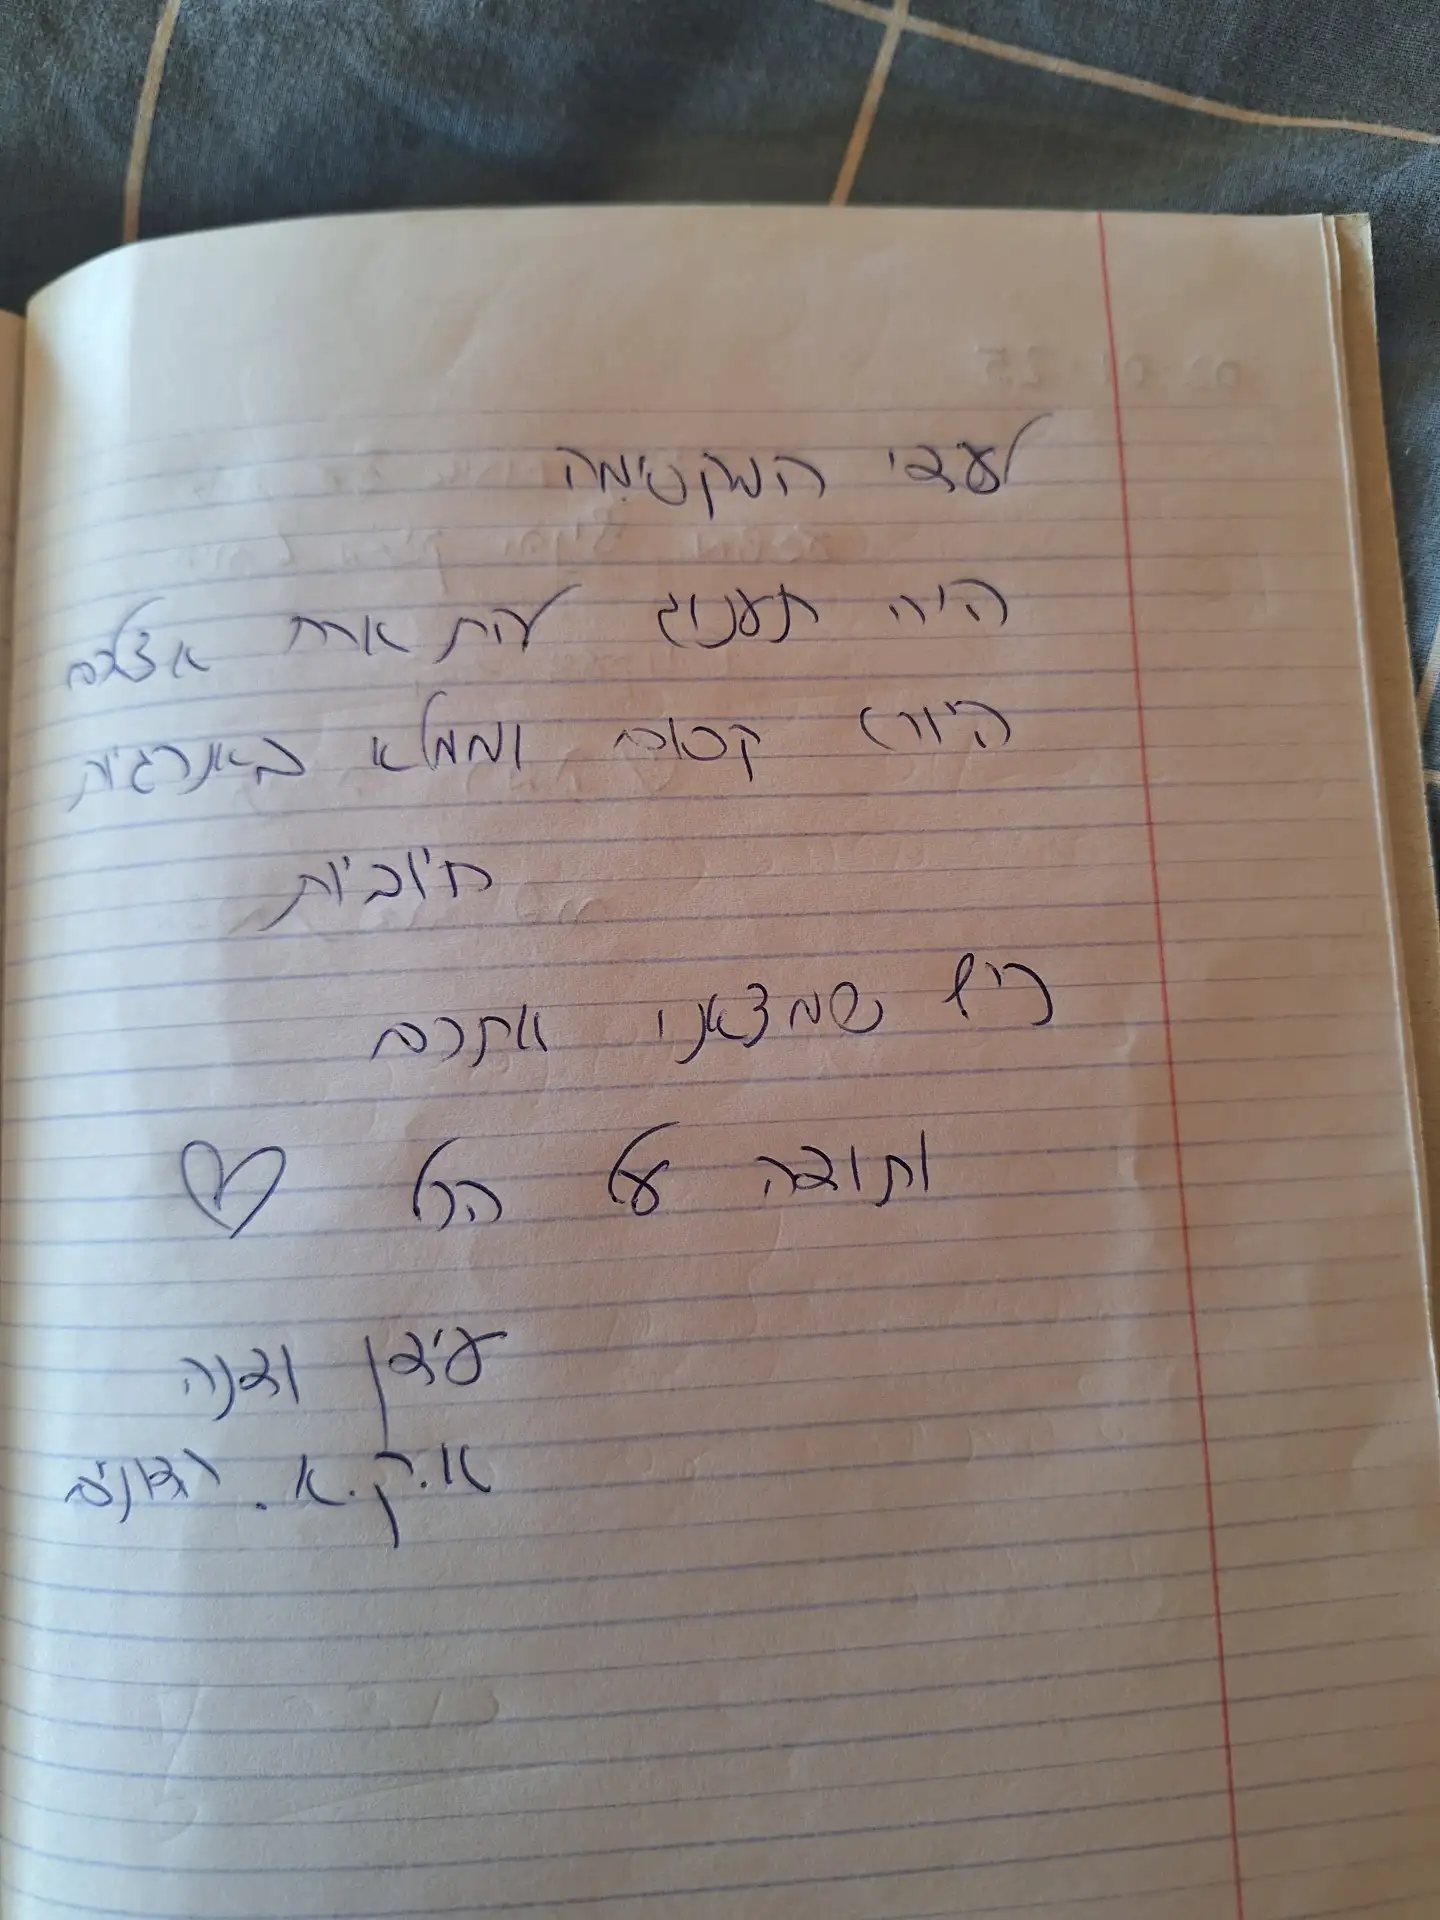 לעדי המקסימה
היה תענוג להתארח אצלכם
היורט קסום וממלא באנרגיות
חיוביות
כיף שמצאנו אתכם
ותודה על הכל
עידן ודנה
א.ק.א.